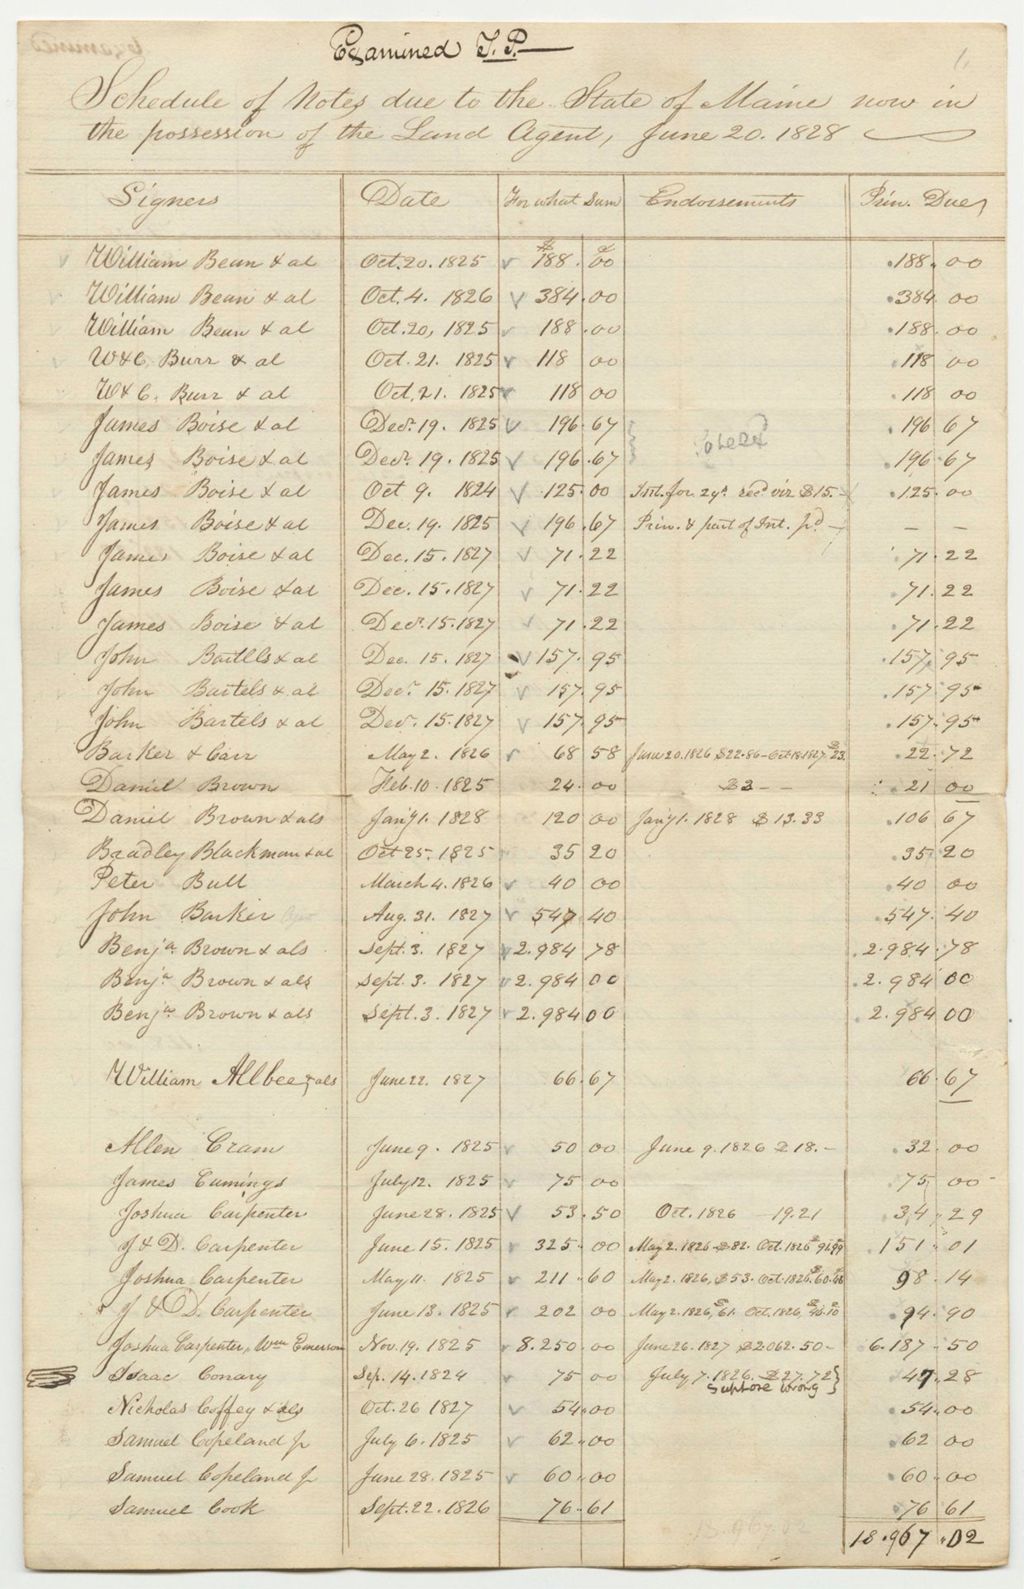 Examined J. P.
Schedule of Notes due to the State of Maine now in
the possession of the Land Agent, June 20. 1828
Signers Date For what Sum Endorsements Prin. Due
William Bean & al Oct. 20. 1825 $188.00 .188.00
William Bean & al Oct. 4. 1826 384.00 .384.00
William Bean & al Oct. 20, 1825 188.00 .188.00
W & C. Burr & al Oct. 21. 1825 118 00 .118 00
W & C. Burr & al Oct. 21. 1825 118 00 118 00
James Boise & al Decr. 19. 1825 196.67 .196 67
James Boise & al Decr. 19. 1825 196.67 .196.67
James Boise & al Oct 9. 1824 125.00 Int. for 2 ys. recd viz $15. .125.00
James Boise & al Dec. 19. 1825 196.67 Prin. & part of Int. pd — — —
James Boise & al Dec. 15. 1827 71.22 .71.22
James Boise & al Dec. 15. 1827 71.22 .71.22
James Boise & al Decr. 15. 1827 71.22 .71.22
John Bartells & al Dec. 15. 1827 157.95 .157.95
John Bartels & al Decr. 15. 1827 157.95 .157.95
John Bartels & al Decr. 15. 1827 157.95 .157.95
Barker & Carr May 2. 1826 68 58 June 20. 1826 $22.86 — Oct 18. 1827 $23. .22.72
Daniel Brown Feb. 10. 1825 24.00 $3 — — .21 00
Daniel Brown & als Jan'y 1. 1828 120 00 Jan'y 1. 1828 $13.33 .106 67
Bradley Blackman & al Oct 25. 1825 35 20 .35.20
Peter Bull March 4. 1826 40 00 .40 00
John Barker Aug. 31. 1827 547.40 .547.40
Benja. Brown & als Sept. 3. 1827 2.984 78 .2.984.78
Benja. Brown & als Sept. 3. 1827 2.984 00 .2.984 00
Benja. Brown & als Sept. 3. 1827 2.984 00 .2.984 00
William Allbee & als June 22. 1827 66.67 66.67
Allen Cram June 9. 1825 50 00 June 9. 1826 $18.— .32.00
James Cumings July 12. 1825 75 00 .75 00
Joshua Carpenter June 28. 1825 53.50 Oct. 1826 — 19.21 .34.29
J & D. Carpenter June 15. 1825 325.00 May 2. 1826 — $82. Oct. 1826 $91.99 .151.01
Joshua Carpenter May 11. 1825 211.60 May 2. 1826, $53. Oct. 1826. $60.46 98.14
J & D. Carpenter June 13. 1825 202 00 May 2. 1826, $61. Oct. 1826, $46.10 .94.90
Joshua Carpenter, Wm Emerson Nov. 19. 1825 8.250.00 June 26. 1827 $2062.50 — 6.187.50
Isaac Conary Sep. 14. 1824 75 00 July 7. 1826. $27.72 .47.28
Suppose wrong
Nicholas Coffey & als Oct. 26 1827 54.00 .54.00
Samuel Copeland Jr July 6. 1825 62.00 .62 00
Samuel Copeland Jr June 28. 1825 60.00 .60.00
Samuel Cook Sept. 22. 1826 76.61 .76 61
18.967.02